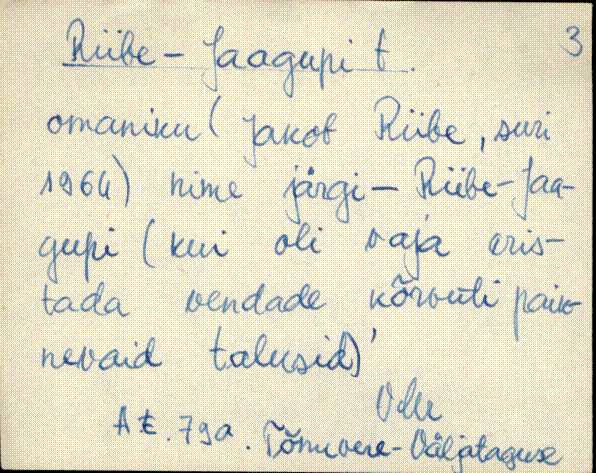 3
Riibe-Jaagupi t.
omaniku (Jakob Riibe, suri
1964) nime järgi - Riibe-Jaa-
gupi (kui oli vaja eris-
tada vendade kõrvuti paik-
nevaid talusid)'
A. 79a. Tõnuvere-Väljataguse